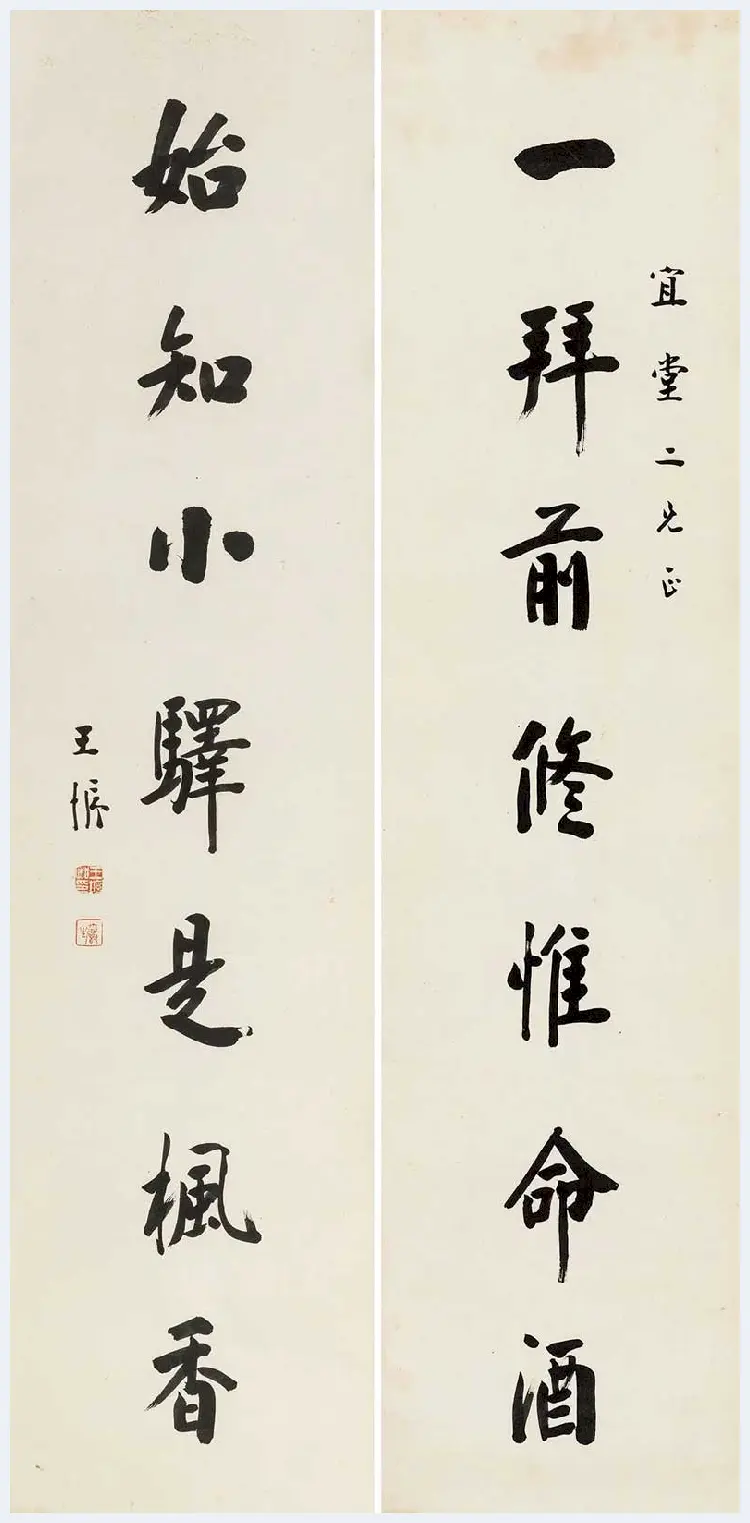 宜堂二兄正
一拜前修惟命酒
始知小驛是楓香
王